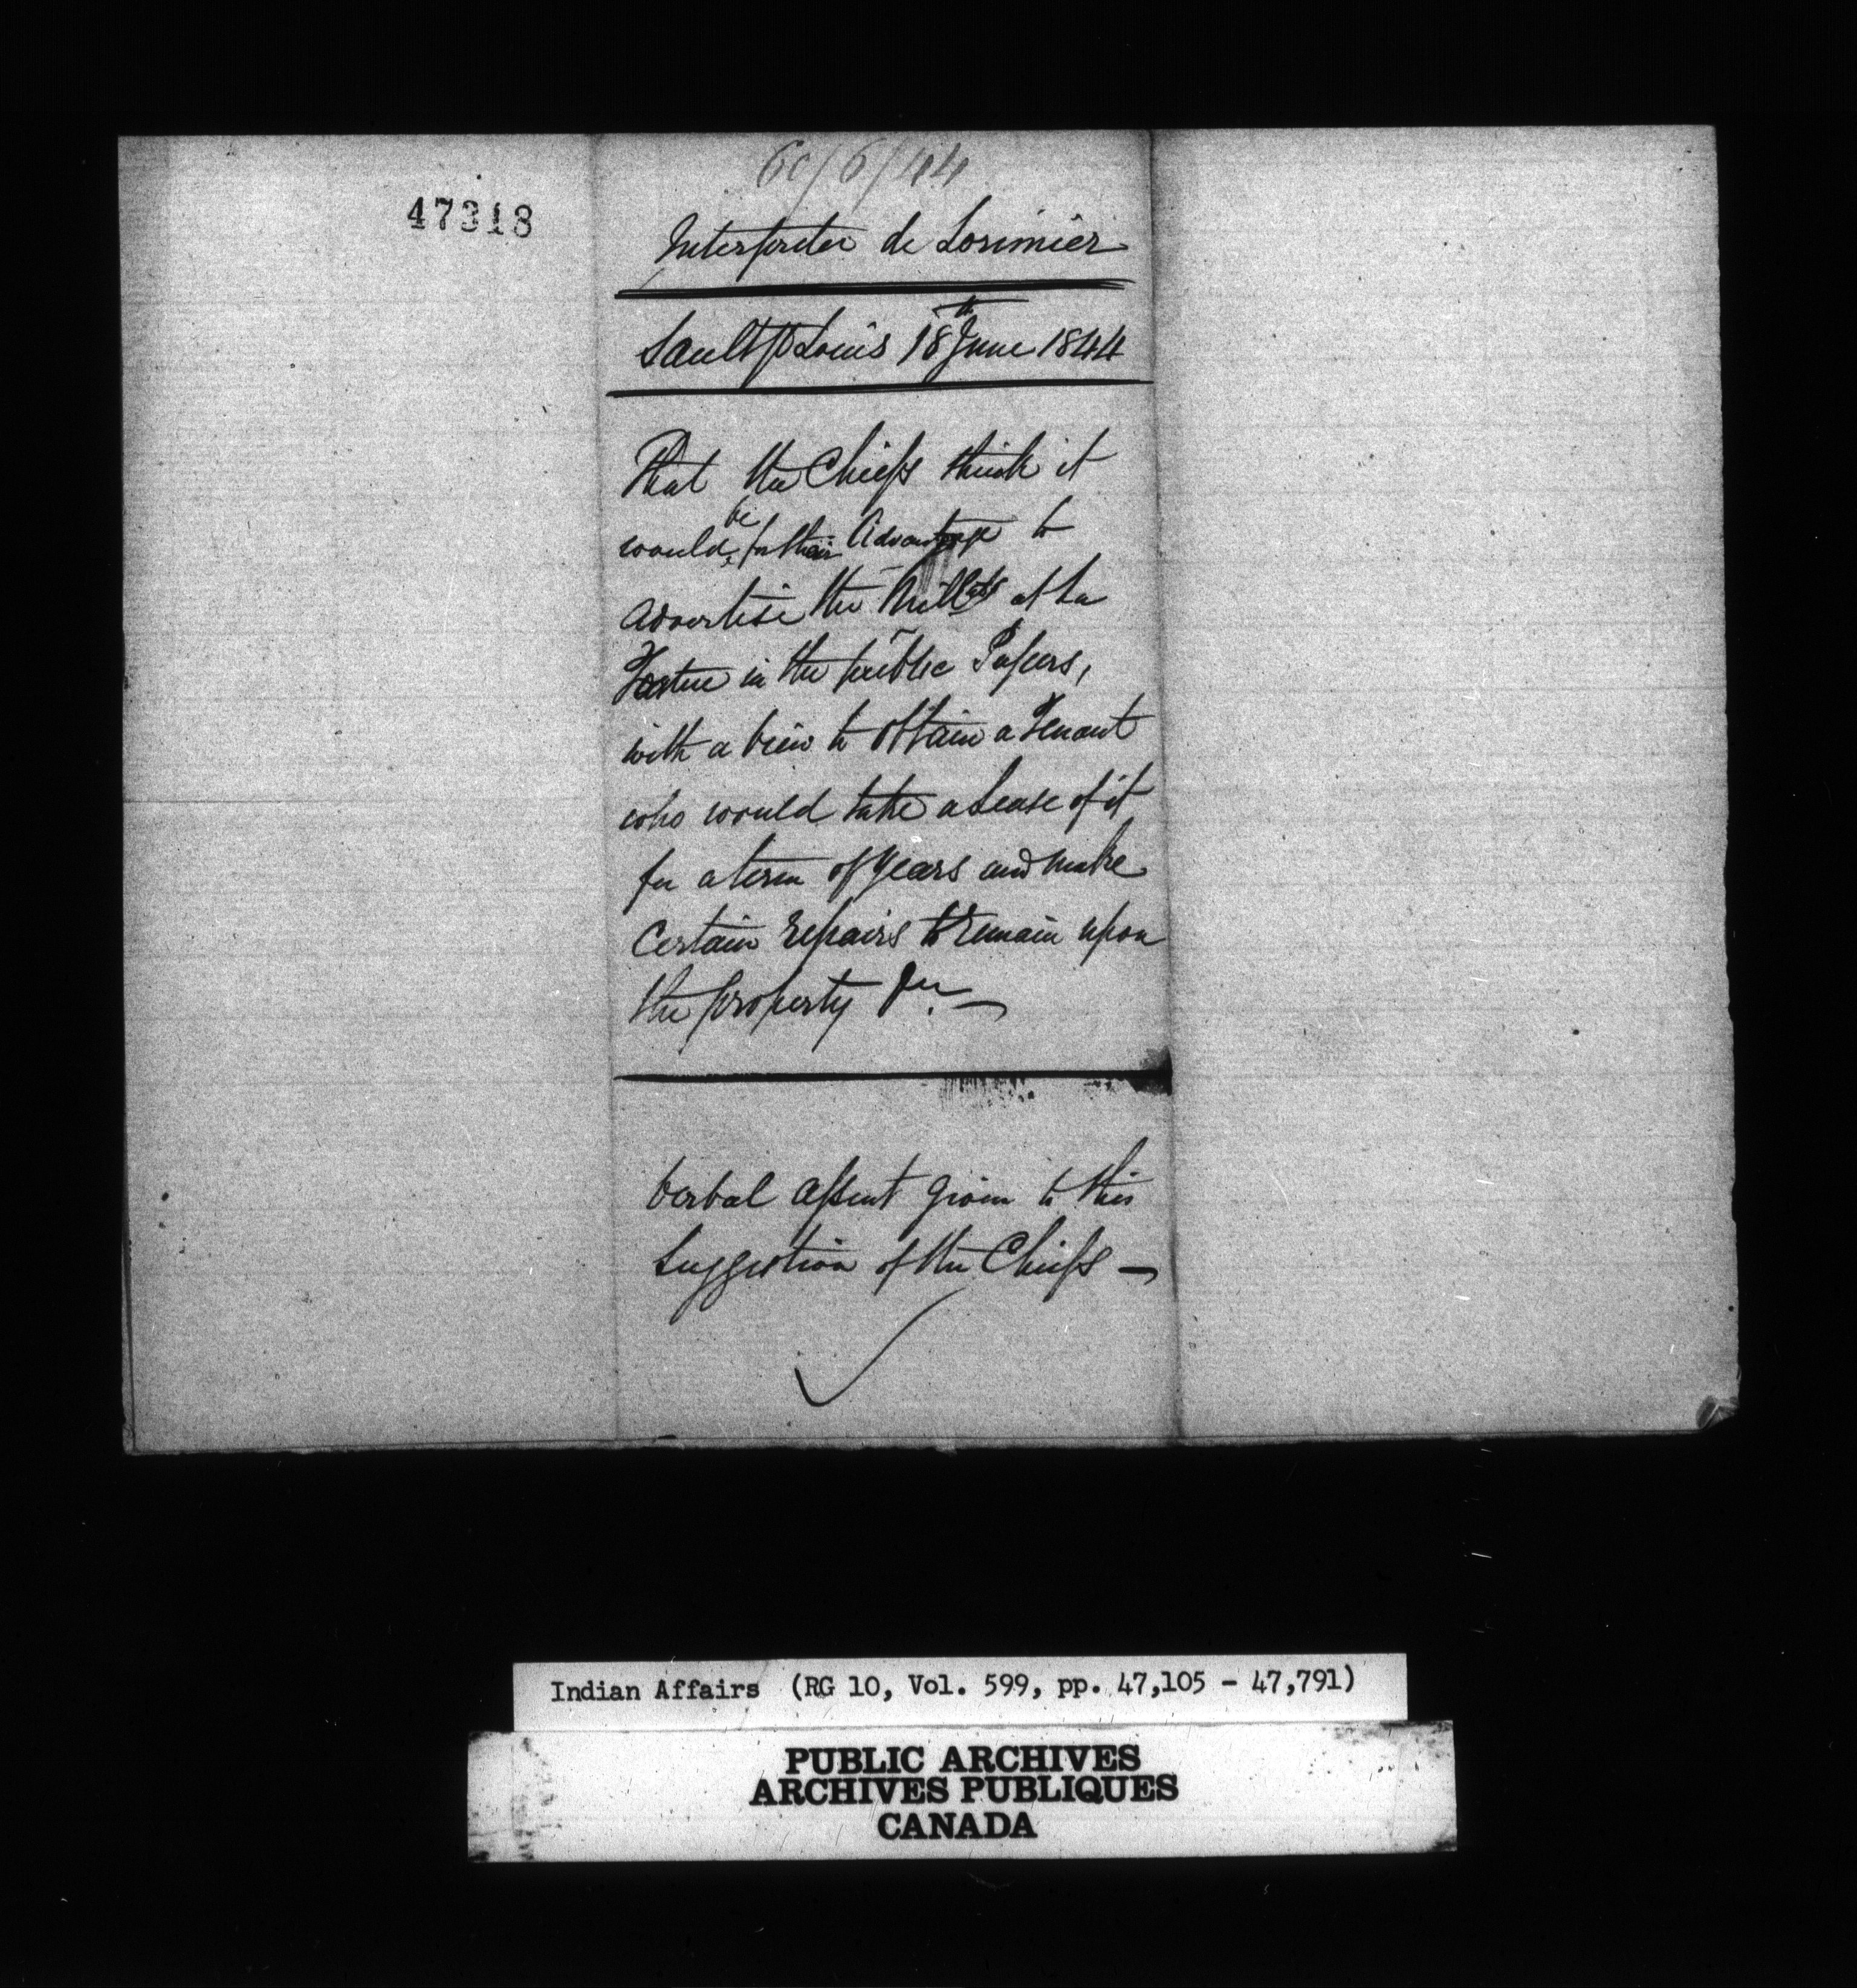 47318
60/6/44
Interpreter de Lorimier
Sault St Louis 18th June 1844
That the Chiefs think it
would be for their Advantage to
advertise the Mill at La
in the public Papers,
with a view to obtain a Tenant
who would take a Lease of it
for a term of years and make
Certain repairs to remain upon
the property &c.
Verbal assent given to this
Suggestion of the Chiefs —
Indian Affairs (RG 10, Vol. 599, pp. 47,105 - 47,791)
PUBLIC ARCHIVES
ARCHIVES PUBLIQUES
CANADA